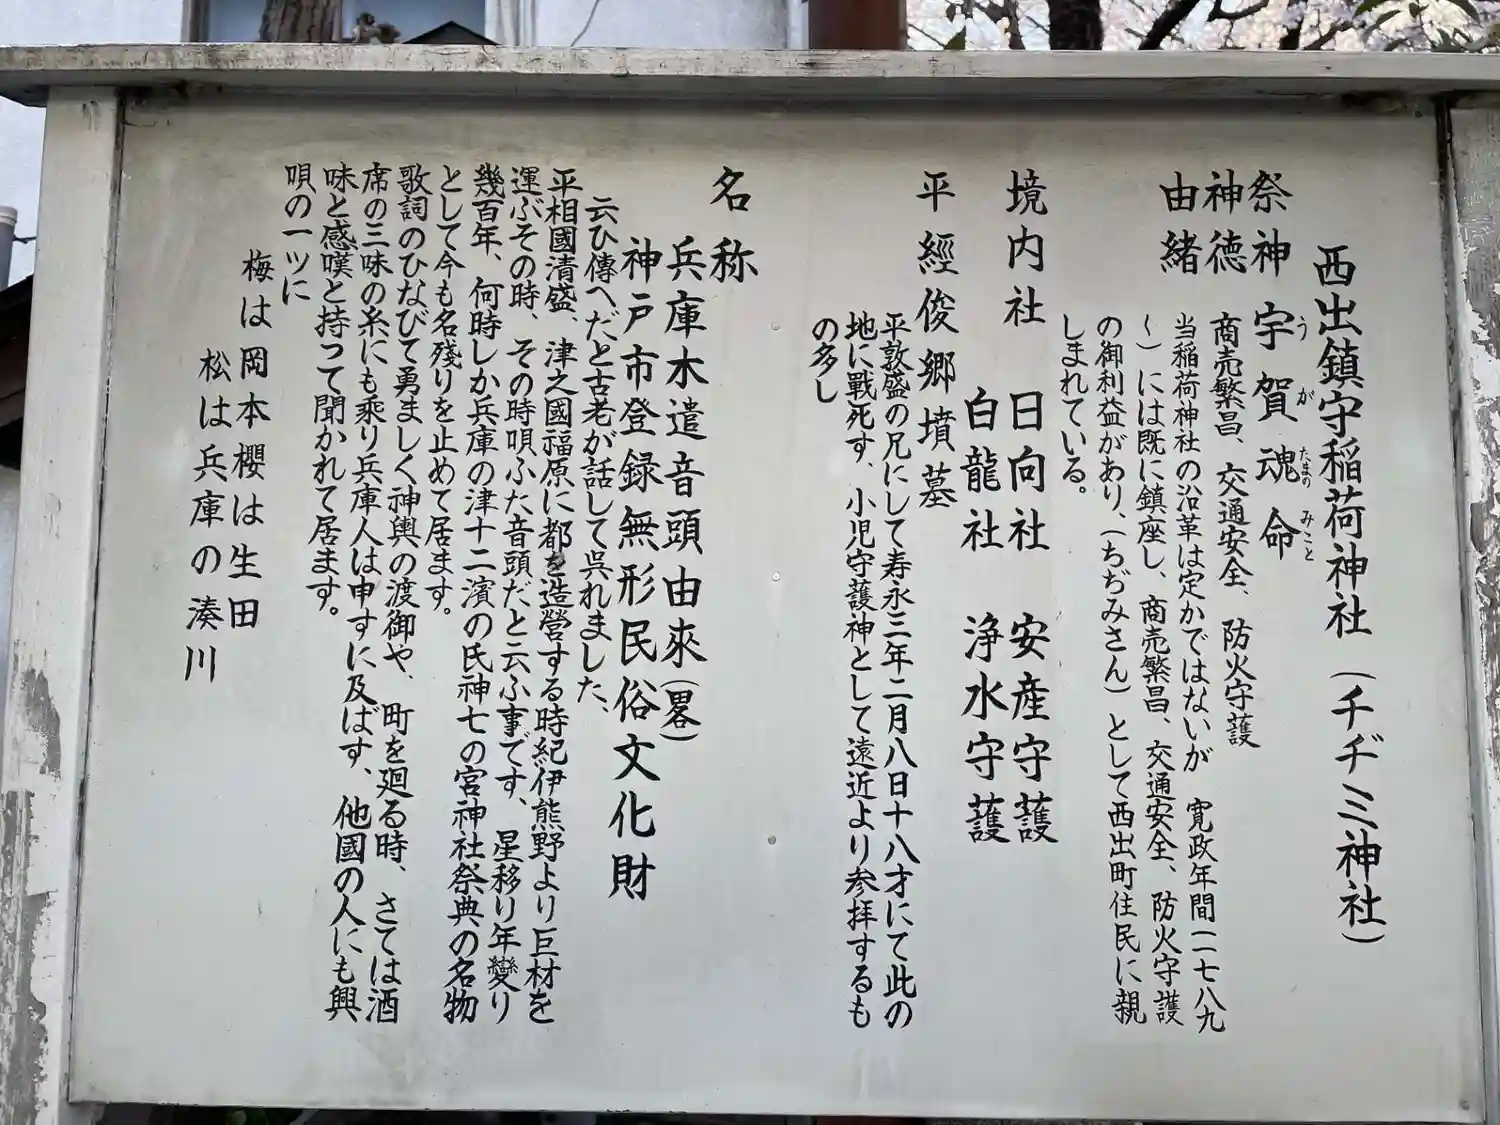 西出鎮守稲荷神社（チヂミ神社）
祭神 宇賀魂命
うがたまのみこと
神徳 商売繁昌、交通安全、防火守護
由緒 当稲荷神社の沿革は定かではないが 寛政年間(一七八九
〜)には既に鎮座し、商売繁昌、交通安全、防火守護
の御利益があり、(ちぢみさん)として西出町住民に親
しまれている。
境内社 日向社 安産守護
白龍社 浄水守護
平經俊郷墳墓
平敦盛の兄にして寿永三年二月八日十八才にて此の
地に戰死す、小児守護神として遠近より参拝するも
の多し
名称
兵庫木遣音頭由來(畧)
神戸市登録無形民俗文化財
云ひ傳へだと古老が話して呉れました、
平相國清盛、津之國福原に都を造營する時紀伊熊野より巨材を
運ぶその時、その時唄ふた音頭だと云ふ事です、星移り年變り
幾百年、何時しか兵庫の津十二濱の氏神七の宮神社祭典の名物
として今も名残りを止めて居ます。
歌詞のひなびて勇ましく神輿の渡御や、町を廻る時、さては酒
席の三味の糸にも乘り兵庫人は申すに及ばす、他國の人にも興
味と感嘆と持つて聞かれて居ます。
唄の一ツに
梅は岡本櫻は生田
松は兵庫の湊川